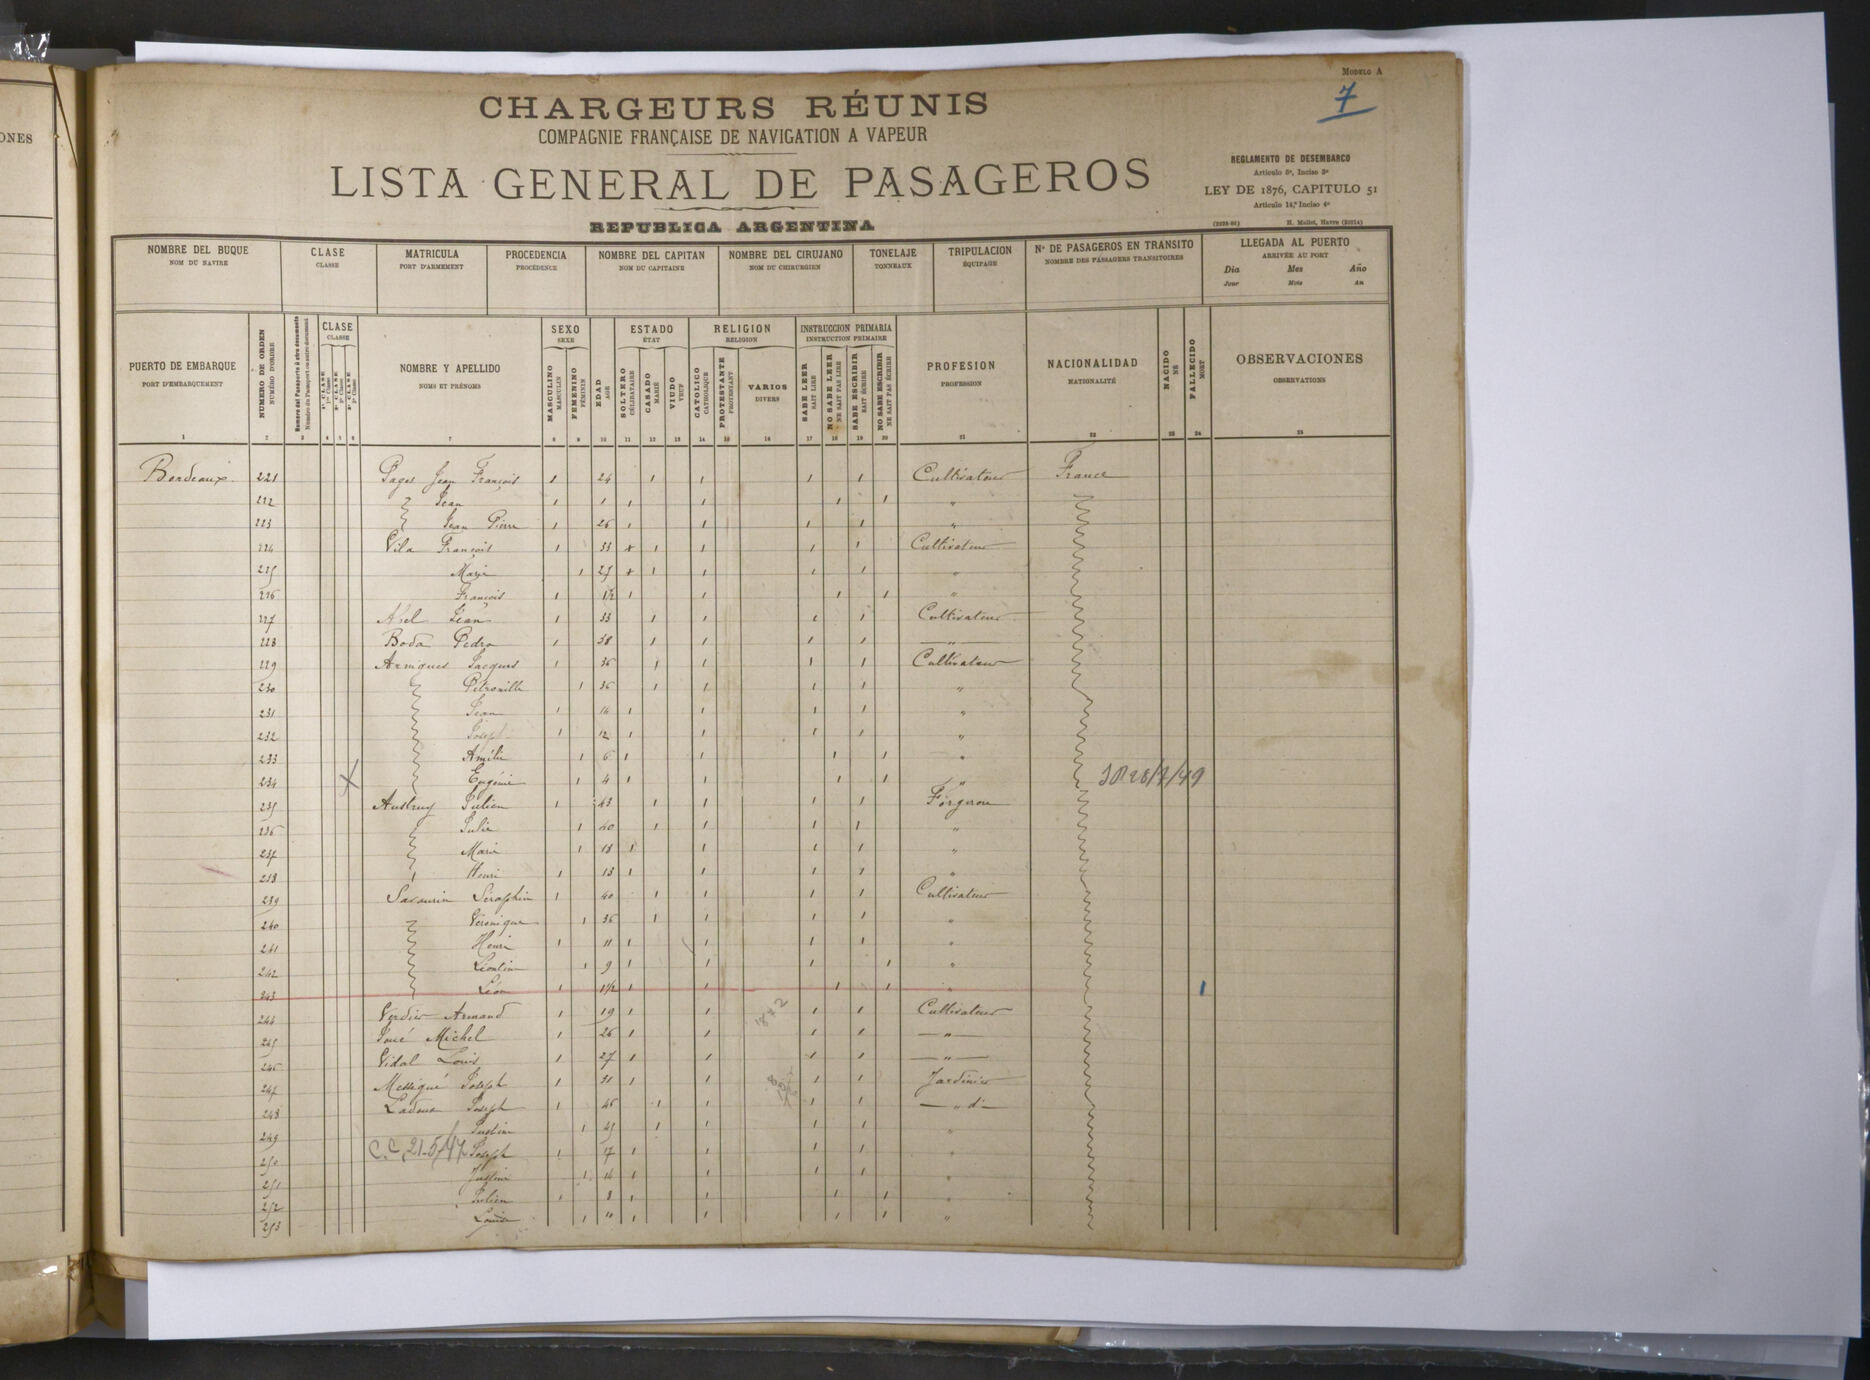 ONES
MODELO A
7
CHARGEURS RÉUNIS
COMPAGNIE FRANÇAISE DE NAVIGATION A VAPEUR
LISTA GENERAL DE PASAGEROS
REPUBLICA ARGENTINA
REGLAMENTO DE DESEMBARCO
Articulo 5º, Inciso 3º
LEY DE 1876, CAPITULO 51
Articulo 14,º Inciso 4º
H. Mallet, Havre (20214)
NOMBRE DEL BUQUE CLASE MATRICULA PROCEDENCIA NOMBRE DEL CAPITAN NOMBRE DEL CIRUJANO TONELAJE TRIPULACION Nº DE PASAGEROS EN TRANSITO LLEGADA AL PUERTO
NOM DU NAVIRE CLASSE PORT D'ARMEMENT PROCÉDENCE NOM DU CAPITAINE NOM DU CHIRURGIEN TONNEAUX ÉQUIPAGE NOMBRE DES PASSAGERS TRANSITOIRES ARRIVÉE AU PORT
Dia Mes Año
Jour Mois An
PUERTO DE EMBARQUE
PORT D'EMBARQUEMENT
NUMERO DE ORDEN
NUMÉRO D'ORDRE
Numero del Pasaporte ú otro documento
Numéro du Passeport ou autre document
CLASE
CLASSE
1ª CLASE
1re Classe
2ª CLASE
2e Classe
3ª CLASE
3e Classe
NOMBRE Y APELLIDO
NOMS ET PRÉNOMS
SEXO
SEXE
MASCULINO
MASCULIN
FEMENINO
FÉMININ
EDAD
AGE
ESTADO
ÉTAT
SOLTERO
CÉLIBATAIRE
CASADO
MARIÉ
VIUDO
VEUF
RELIGION
RELIGION
CATOLICO
CATHOLIQUE
PROTESTANTE
PROTESTANT
VARIOS
DIVERS
INSTRUCCION PRIMARIA
INSTRUCTION PRIMAIRE
SABE LEER
SAIT LIRE
NO SABE LEER
NE SAIT PAS LIRE
SABE ESCRIBIR
SAIT ÉCRIRE
NO SABE ESCRIBIR
NE SAIT PAS ÉCRIRE
PROFESION
PROFESSION
NACIONALIDAD
NATIONALITÉ
NACIDO
NÉ
FALLECIDO
MORT
OBSERVACIONES
OBSERVATIONS
1 2 3 4 5 6 7 8 9 10 11 12 13 14 15 16 17 18 19 20 21 22 23 24 25
Bordeaux 221 Pages Jean François 1 24 1 1 1 1 Cultivateur France
222 Jean 1 1 1 1 1 1 "
223 Jean Pierre 1 26 1 1 1 1 "
224 Vila François 1 33 x 1 1 1 1 Cultivateur
225 Marie 1 27 x 1 1 1 1 "
226 François 1 1/2 1 1 1 1 "
227 Abel Jean 1 33 1 1 1 1 Cultivateur
228 Boda Pedro 1 38 1 1 1 1 "
229 Armiques Jacques 1 36 1 1 1 1 Cultivateur
230 Pétronille 1 36 1 1 1 1 "
231 Jean 1 14 1 1 1 1 "
232 Joseph 1 12 1 1 1 1 "
233 Amélie 1 6 1 1 1 1 "
234 X Eugénie 1 4 1 1 1 1 "
235 Austruy Julien 1 43 1 1 1 1 Forgeron
236 Julie 1 40 1 1 1 1 "
237 Marie 1 18 1 1 1 1 "
238 Henri 1 13 1 1 1 1 "
239 Savaurin Séraphin 1 40 1 1 1 1 Cultivateur
240 Véronique 1 36 1 1 1 1 "
241 Henri 1 11 1 1 1 1 "
242 Léontine 1 9 1 1 1 1 "
243 Léon 1 1/2 1 1 1 1 " 1
244 Verdier Armand 1 19 1 1 1 1 Cultivateur
245 Michel 1 26 1 1 1 1 "
246 Vidal Louis 1 27 1 1 1 1 "
247 Messigué Joseph 1 31 1 1 1 1 Jardinier
248 Ladoux Joseph 1 46 1 1 1 1 " d
249 Justine 1 45 1 1 1 1 "
250 C.C. 21-5/47 Joseph 1 17 1 1 1 1 "
251 Justine 1 14 1 1 1 1 "
252 Julien 1 8 1 1 1 1 "
253 Louise 1 " 1 1 1 1 "